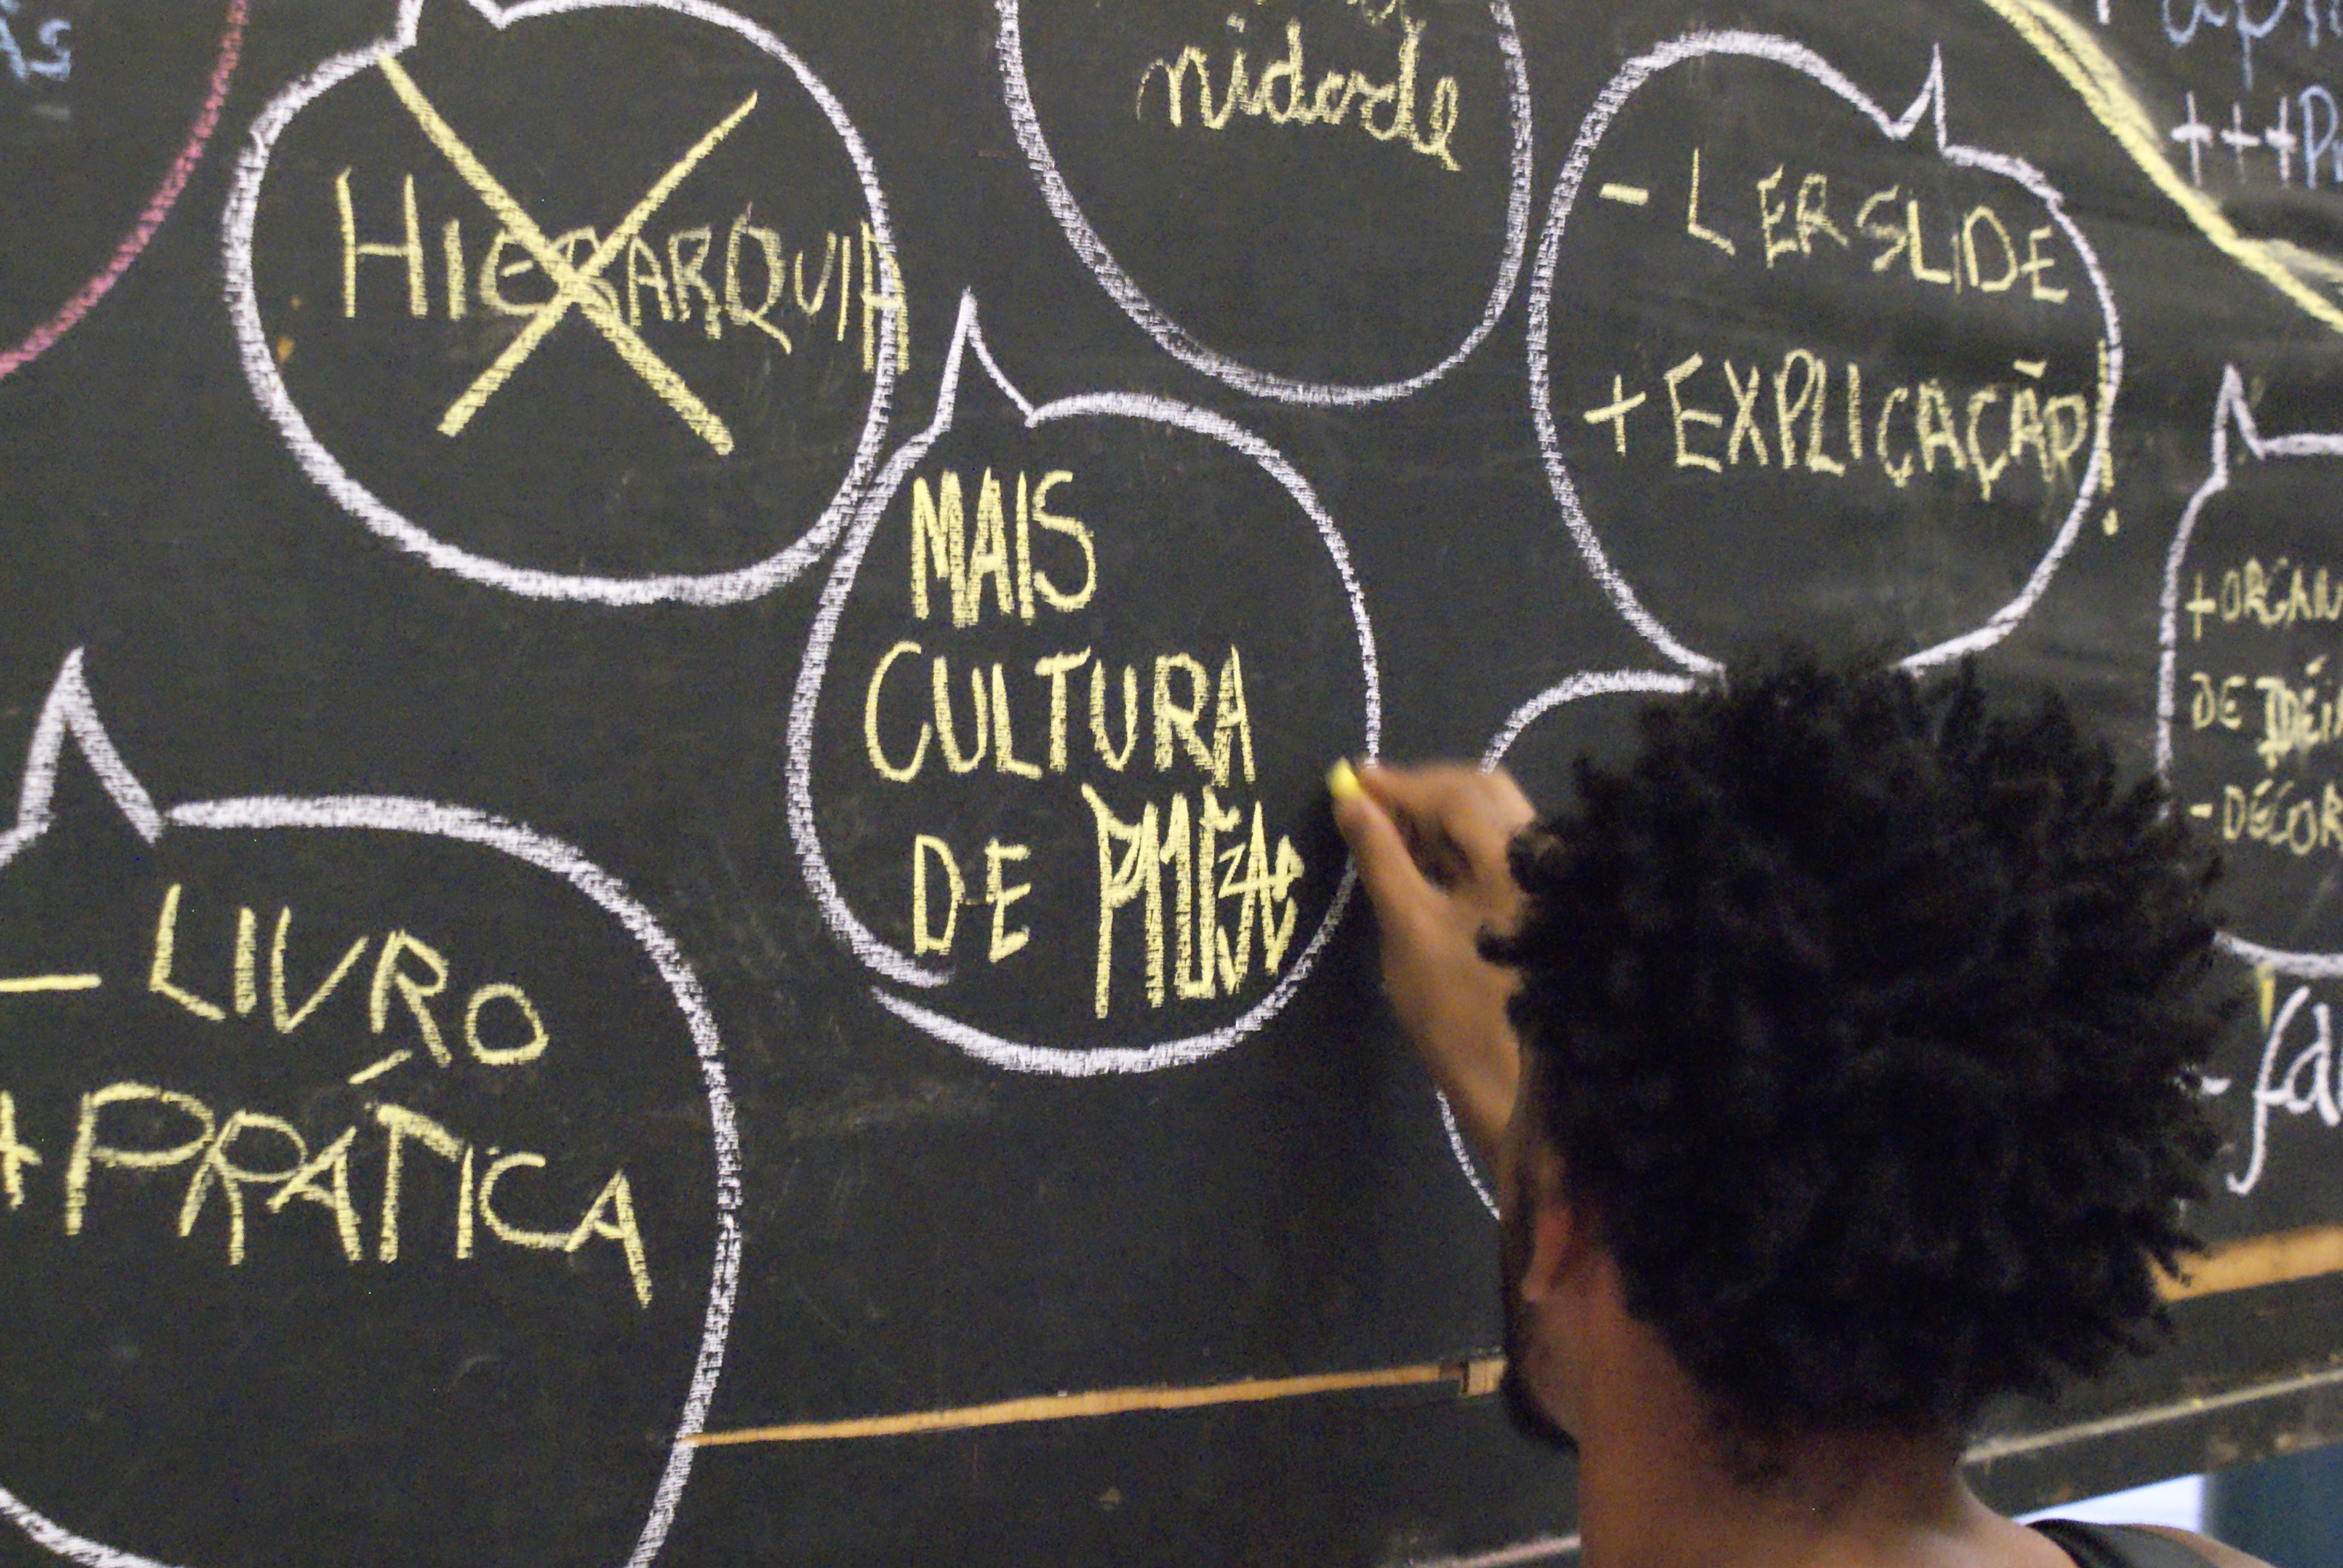 HIERARQUIA
nidade
- LER SLIDE
+ EXPLICAÇÃO!
MAIS
CULTURA
DE
- LIVRO
+ PRÁTICA
+ ORGAN
DE IDÉI
- DECOR
+++ P